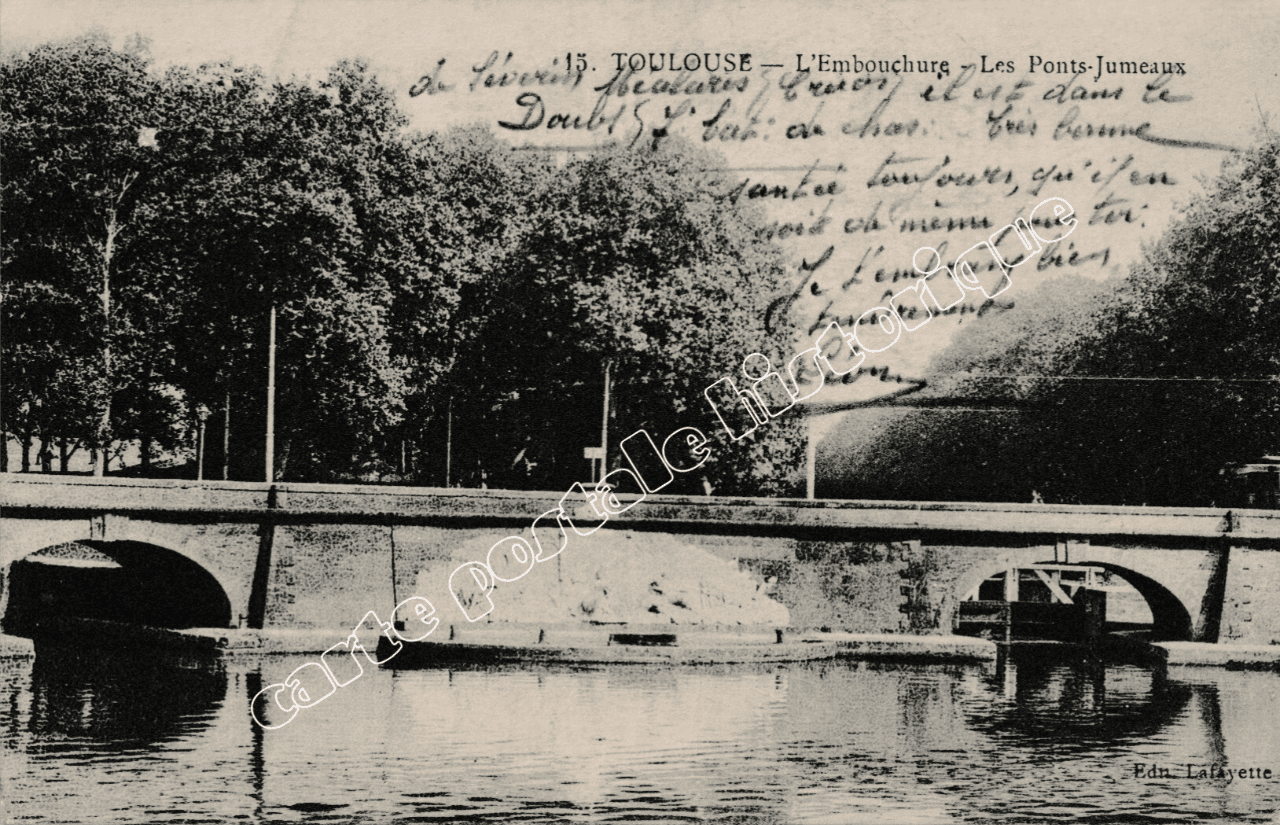 15. TOULOUSE — L'Embouchure - Les Ponts-Jumeaux
de Séverin il est dans le
Doubs 7e bat: de chas. très bonne
santé toujours, qu'il en
soit de même de toi.
Je t'embrasse bien
tendrement
carte postale historique
Edit. Lafayette